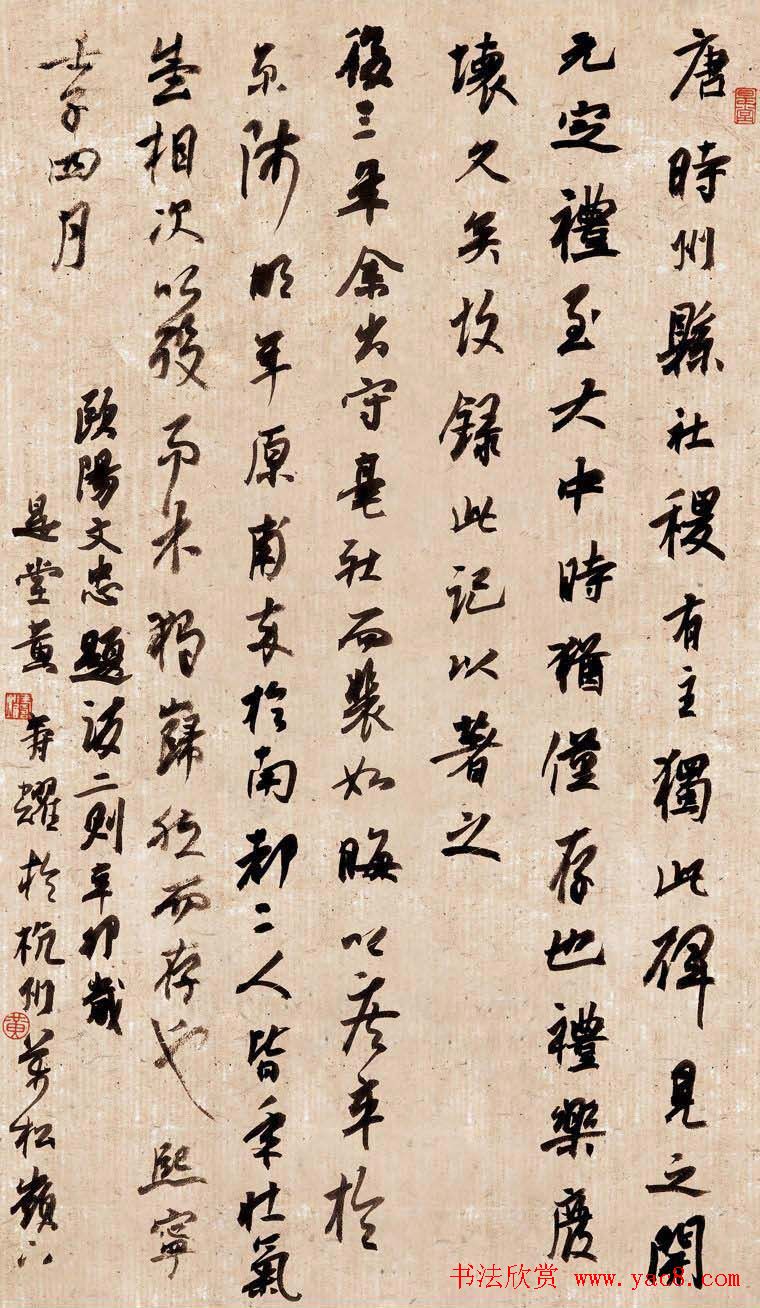 唐時州縣社稷有主獨此碑見之開
元定禮至大中時猶僅存也禮樂廢
壞久矣故錄此記以著之
後三年余出守亳社而裴如晦以疾卒於
京師明年原甫卒於南都二人皆年壯氣
盛相次以歿而余獨巋然而存也熙寧
壬子四月
歐陽文忠題跋二則辛卯歲
是堂黃壽耀於杭州萬松嶺下
黃
书法欣赏 www.yac8.com